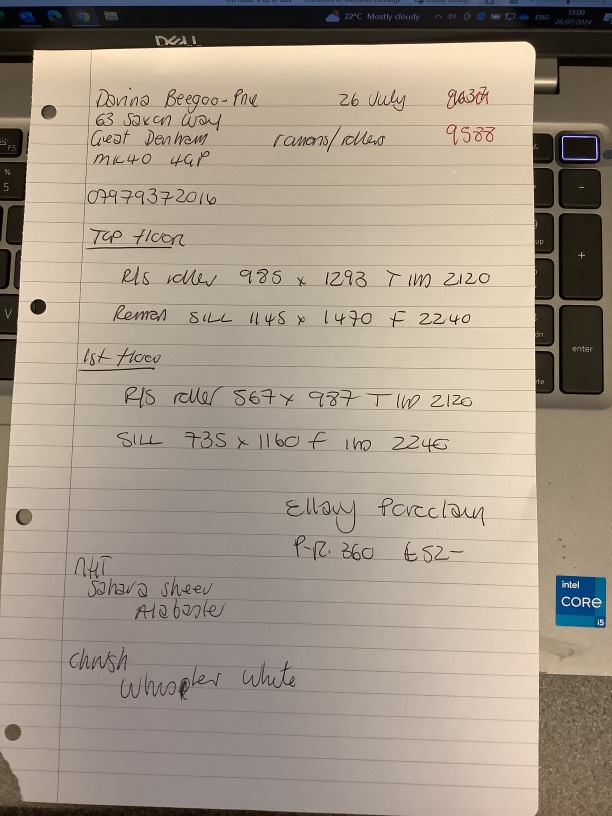 22°C Mostly cloudy ENG 15:00
26/07/2024
DELL
Davina Beegoo-Pne 26 July
63 Saxon Way
Great Denham romans/rollers 9588
MK40 4GP
07979372016
Top floor
R/S roller 985 x 1293 T IW 2120
Roman SILL 1145 x 1470 F 2240
1st floor
R/S roller 567 x 987 T IW 2120
SILL 735 x 1160 F IW 2240
Ellay Porcelain
P.R. 360 £52-
Sahara sheer
Alabaster
Whisper White
intel
CORE
i5
enter